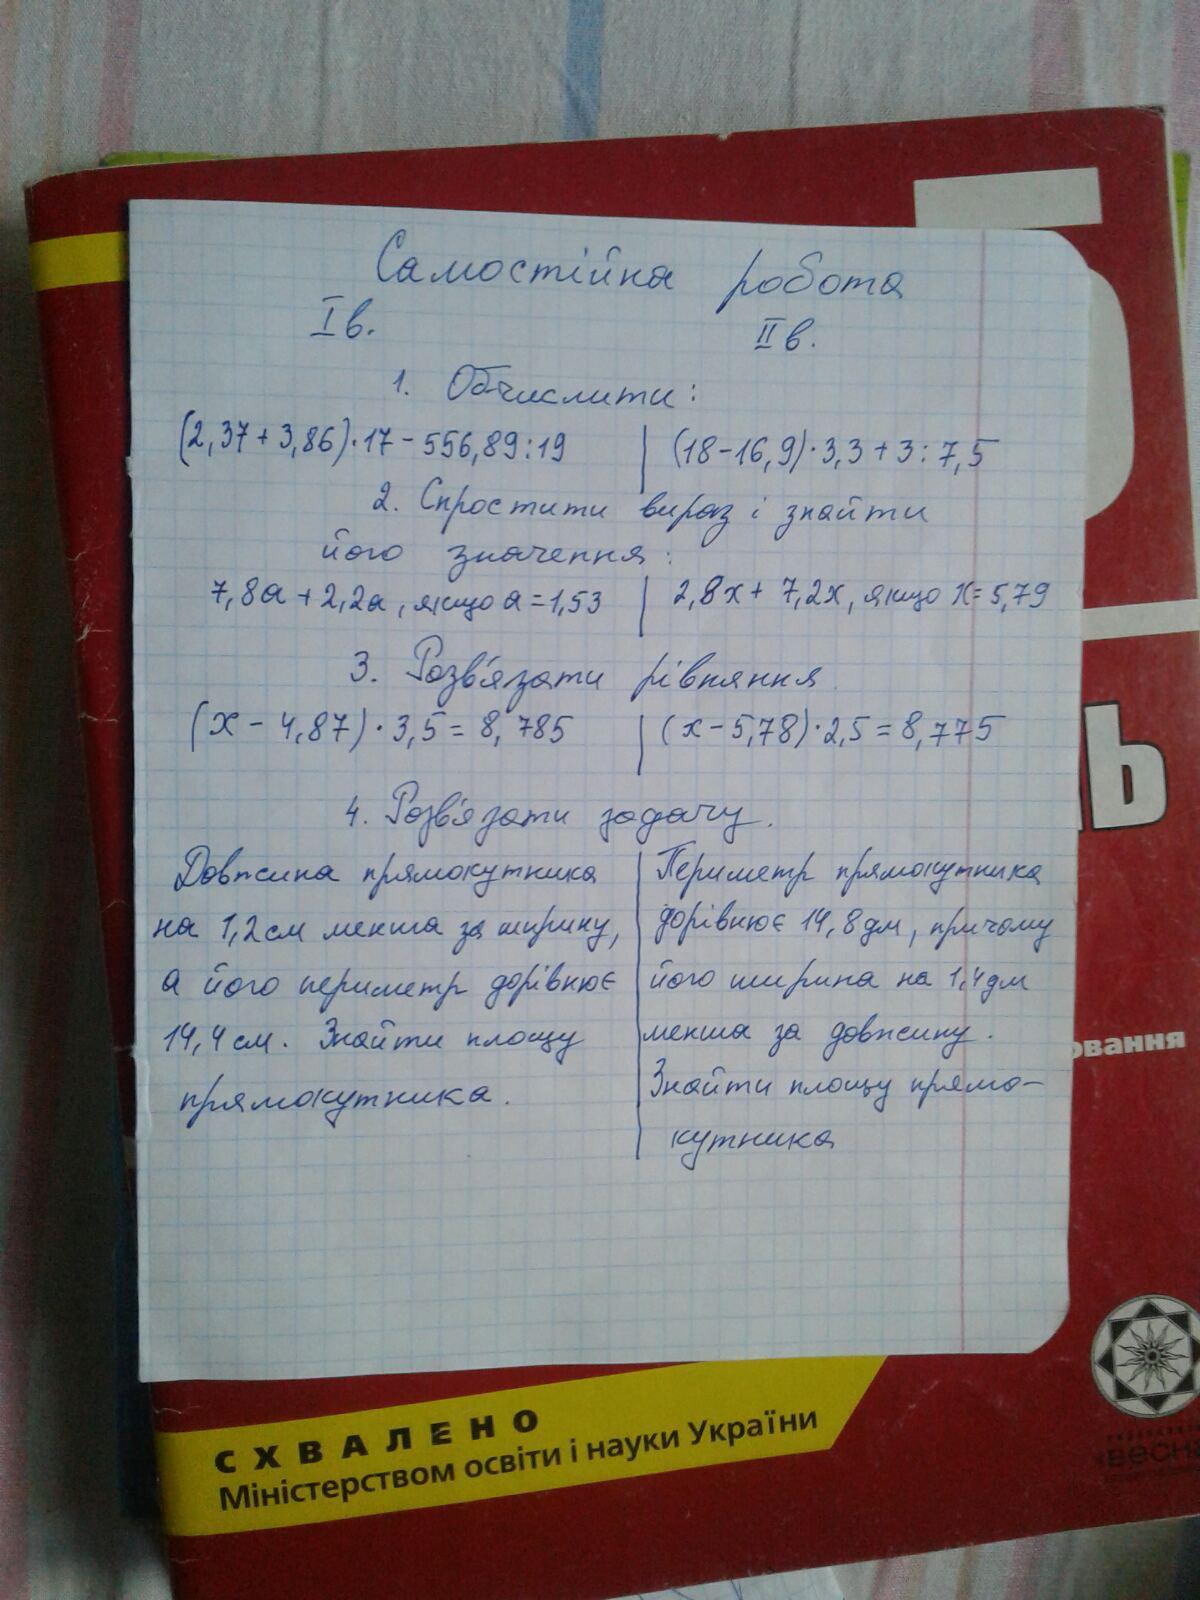 Самостійна робота
Ів. ІІв.
1. Обчислити:
(2,37 + 3,86)·17 - 556,89:19 | (18-16,9)·3,3 + 3 : 7,5
2. Спростити вираз і знайти
його значення:
7,8а + 2,2а, якщо а = 1,53 | 2,8х + 7,2х, якщо х = 5,79
3. Розв'язати рівняння
(х - 4,87)·3,5 = 8,785 | (х - 5,78)·2,5 = 8,775
4. Розв'язати задачу.
Довжина прямокутника
на 1,2 см менша за ширину,
а його периметр дорівнює
14,4 см. Знайти площу
прямокутника.
Периметр прямокутника
дорівнює 14,8 дм, причому
його ширина на 1,4 дм
менша за довжину.
Знайти площу прямо-
кутника
Ь
овання
СХВАЛЕНО
Міністерством освіти і науки України